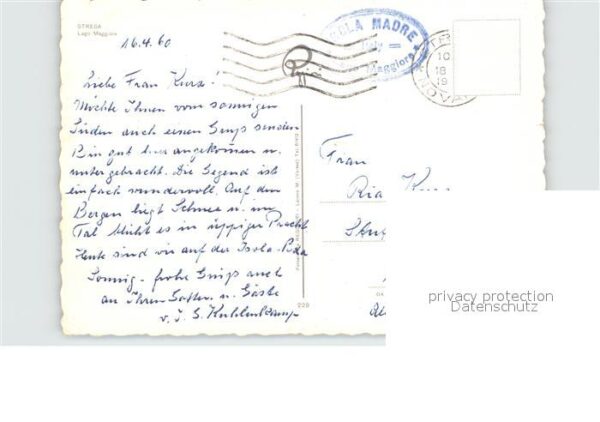 STRESA
Lago Maggiore
16.4.60
Liebe Frau Kurz!
Möchte Ihnen vom sonnigen
Süden auch einen Gruß senden
Bin gut hier angekommen u.
untergebracht. Die Gegend ist
einfach wundervoll. Auf den
Bergen liegt Schnee u. im
Tal blüht es in üppiger Pracht
Heute sind wir auf der Isola-
Sonnig - frohe Grüße auch
an Ihren Gatten u. Gäste
v. I. S. Kuhlenkamp
ISOLA MADRE
Italy
Maggiore
10
18
19
NOVA
Frau
Ria
228
privacy protection
Datenschutz